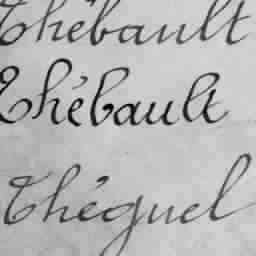 Thébault
Thébault
Théguel